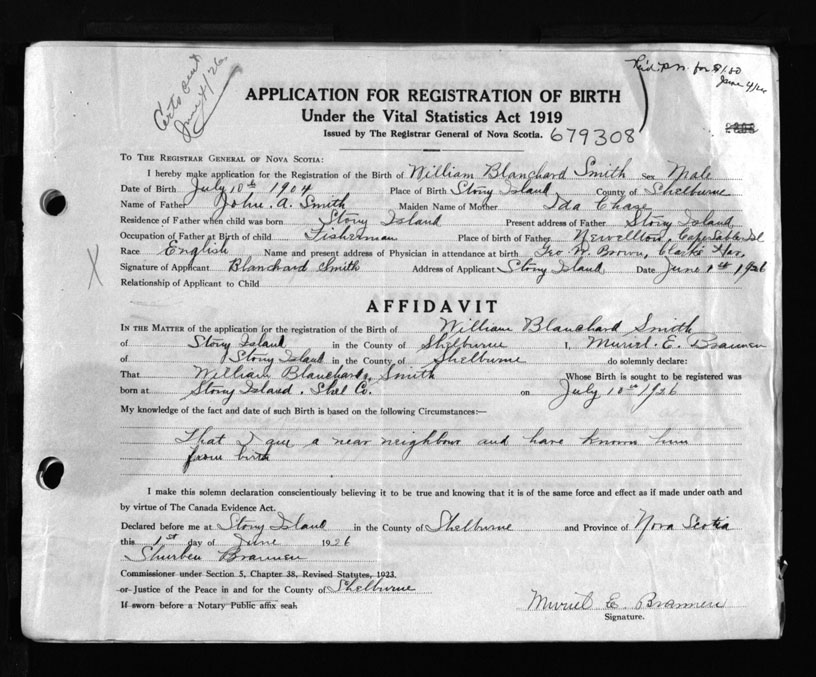 Certs sent
June 4/26
Rec'd P.N. for $1.50
June 4/26
APPLICATION FOR REGISTRATION OF BIRTH
Under the Vital Statistics Act 1919
Issued by The Registrar General of Nova Scotia. 679308
TO THE REGISTRAR GENERAL OF NOVA SCOTIA:
I hereby make application for the Registration of the Birth of William Blanchard Smith sex Male
Date of Birth July 10th 1904 Place of Birth Stony Island County of Shelburne
Name of Father John. A. Smith Maiden Name of Mother Ida Chase
Residence of Father when child was born Stony Island Present address of Father Stony Island
Occupation of Father at Birth of child Fisherman Place of birth of Father Newellton, Cape Sable Isl
Race English Name and present address of Physician in attendance at birth Geo. W. Brown, Clarks Har.
Signature of Applicant Blanchard Smith Address of Applicant Stony Island Date June 1st 1926
Relationship of Applicant to Child
X
AFFIDAVIT
IN THE MATTER of the application for the registration of the Birth of William Blanchard Smith
of Stony Island in the County of Shelburne I, Muriel. E. Brannen
of Stony Island in the County of Shelburne do solemnly declare:
That William Blanchard Smith Whose Birth is sought to be registered was
born at Stony Island. Shel Co. on July 10th 1926
My knowledge of the fact and date of such Birth is based on the following Circumstances:—
That I am a near neighbour and have known him
from birth
I make this solemn declaration conscientiously believing it to be true and knowing that it is of the same force and effect as if made under oath and
by virtue of The Canada Evidence Act.
Declared before me at Stony Island in the County of Shelburne and Province of Nova Scotia
this 1st day of June 1926
Brannen
Commissioner under Section 5, Chapter 38, Revised Statutes, 1923.
or Justice of the Peace in and for the County of Shelburne
If sworn before a Notary Public affix seal
Muriel E. Brannen
Signature.